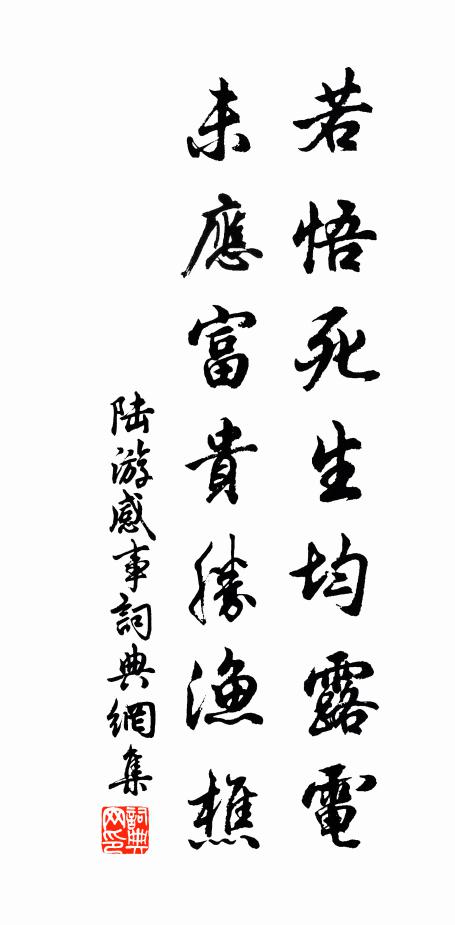 若悟死生均露電
未應富貴勝漁樵
陆游感事詞典網集
詞典网印